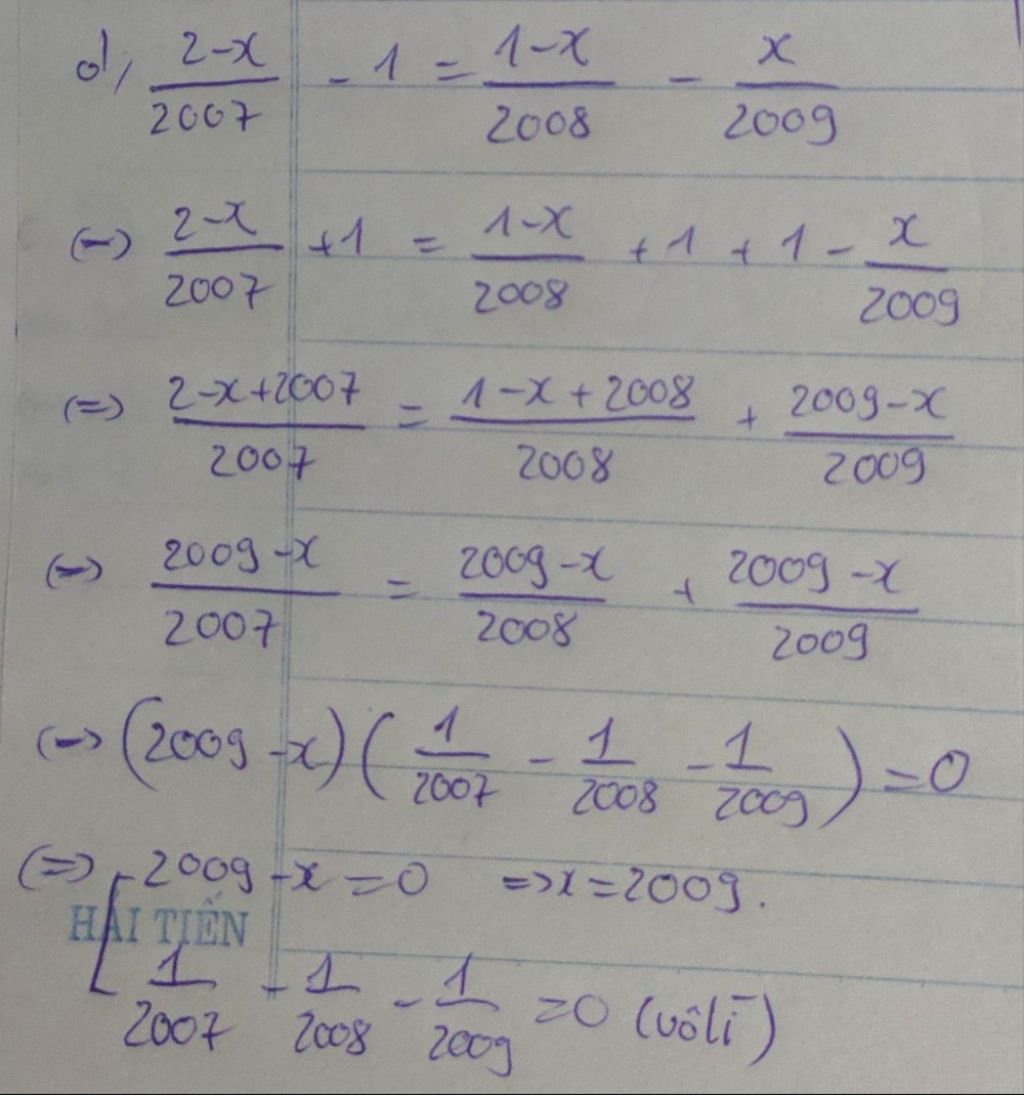 d, \frac{2-x}{2007} - 1 = \frac{1-x}{2008} - \frac{x}{2009}
(=) \frac{2-x}{2007} + 1 = \frac{1-x}{2008} + 1 + 1 - \frac{x}{2009}
(=) \frac{2-x+2007}{2007} = \frac{1-x+2008}{2008} + \frac{2009-x}{2009}
(=) \frac{2009-x}{2007} = \frac{2009-x}{2008} + \frac{2009-x}{2009}
(=) (2009-x)(\frac{1}{2007} - \frac{1}{2008} - \frac{1}{2009}) = 0
(=) [ 2009-x=0 => x=2009.
HẢI TIẾN
\frac{1}{2007} - \frac{1}{2008} - \frac{1}{2009} = 0 (vôlĩ)